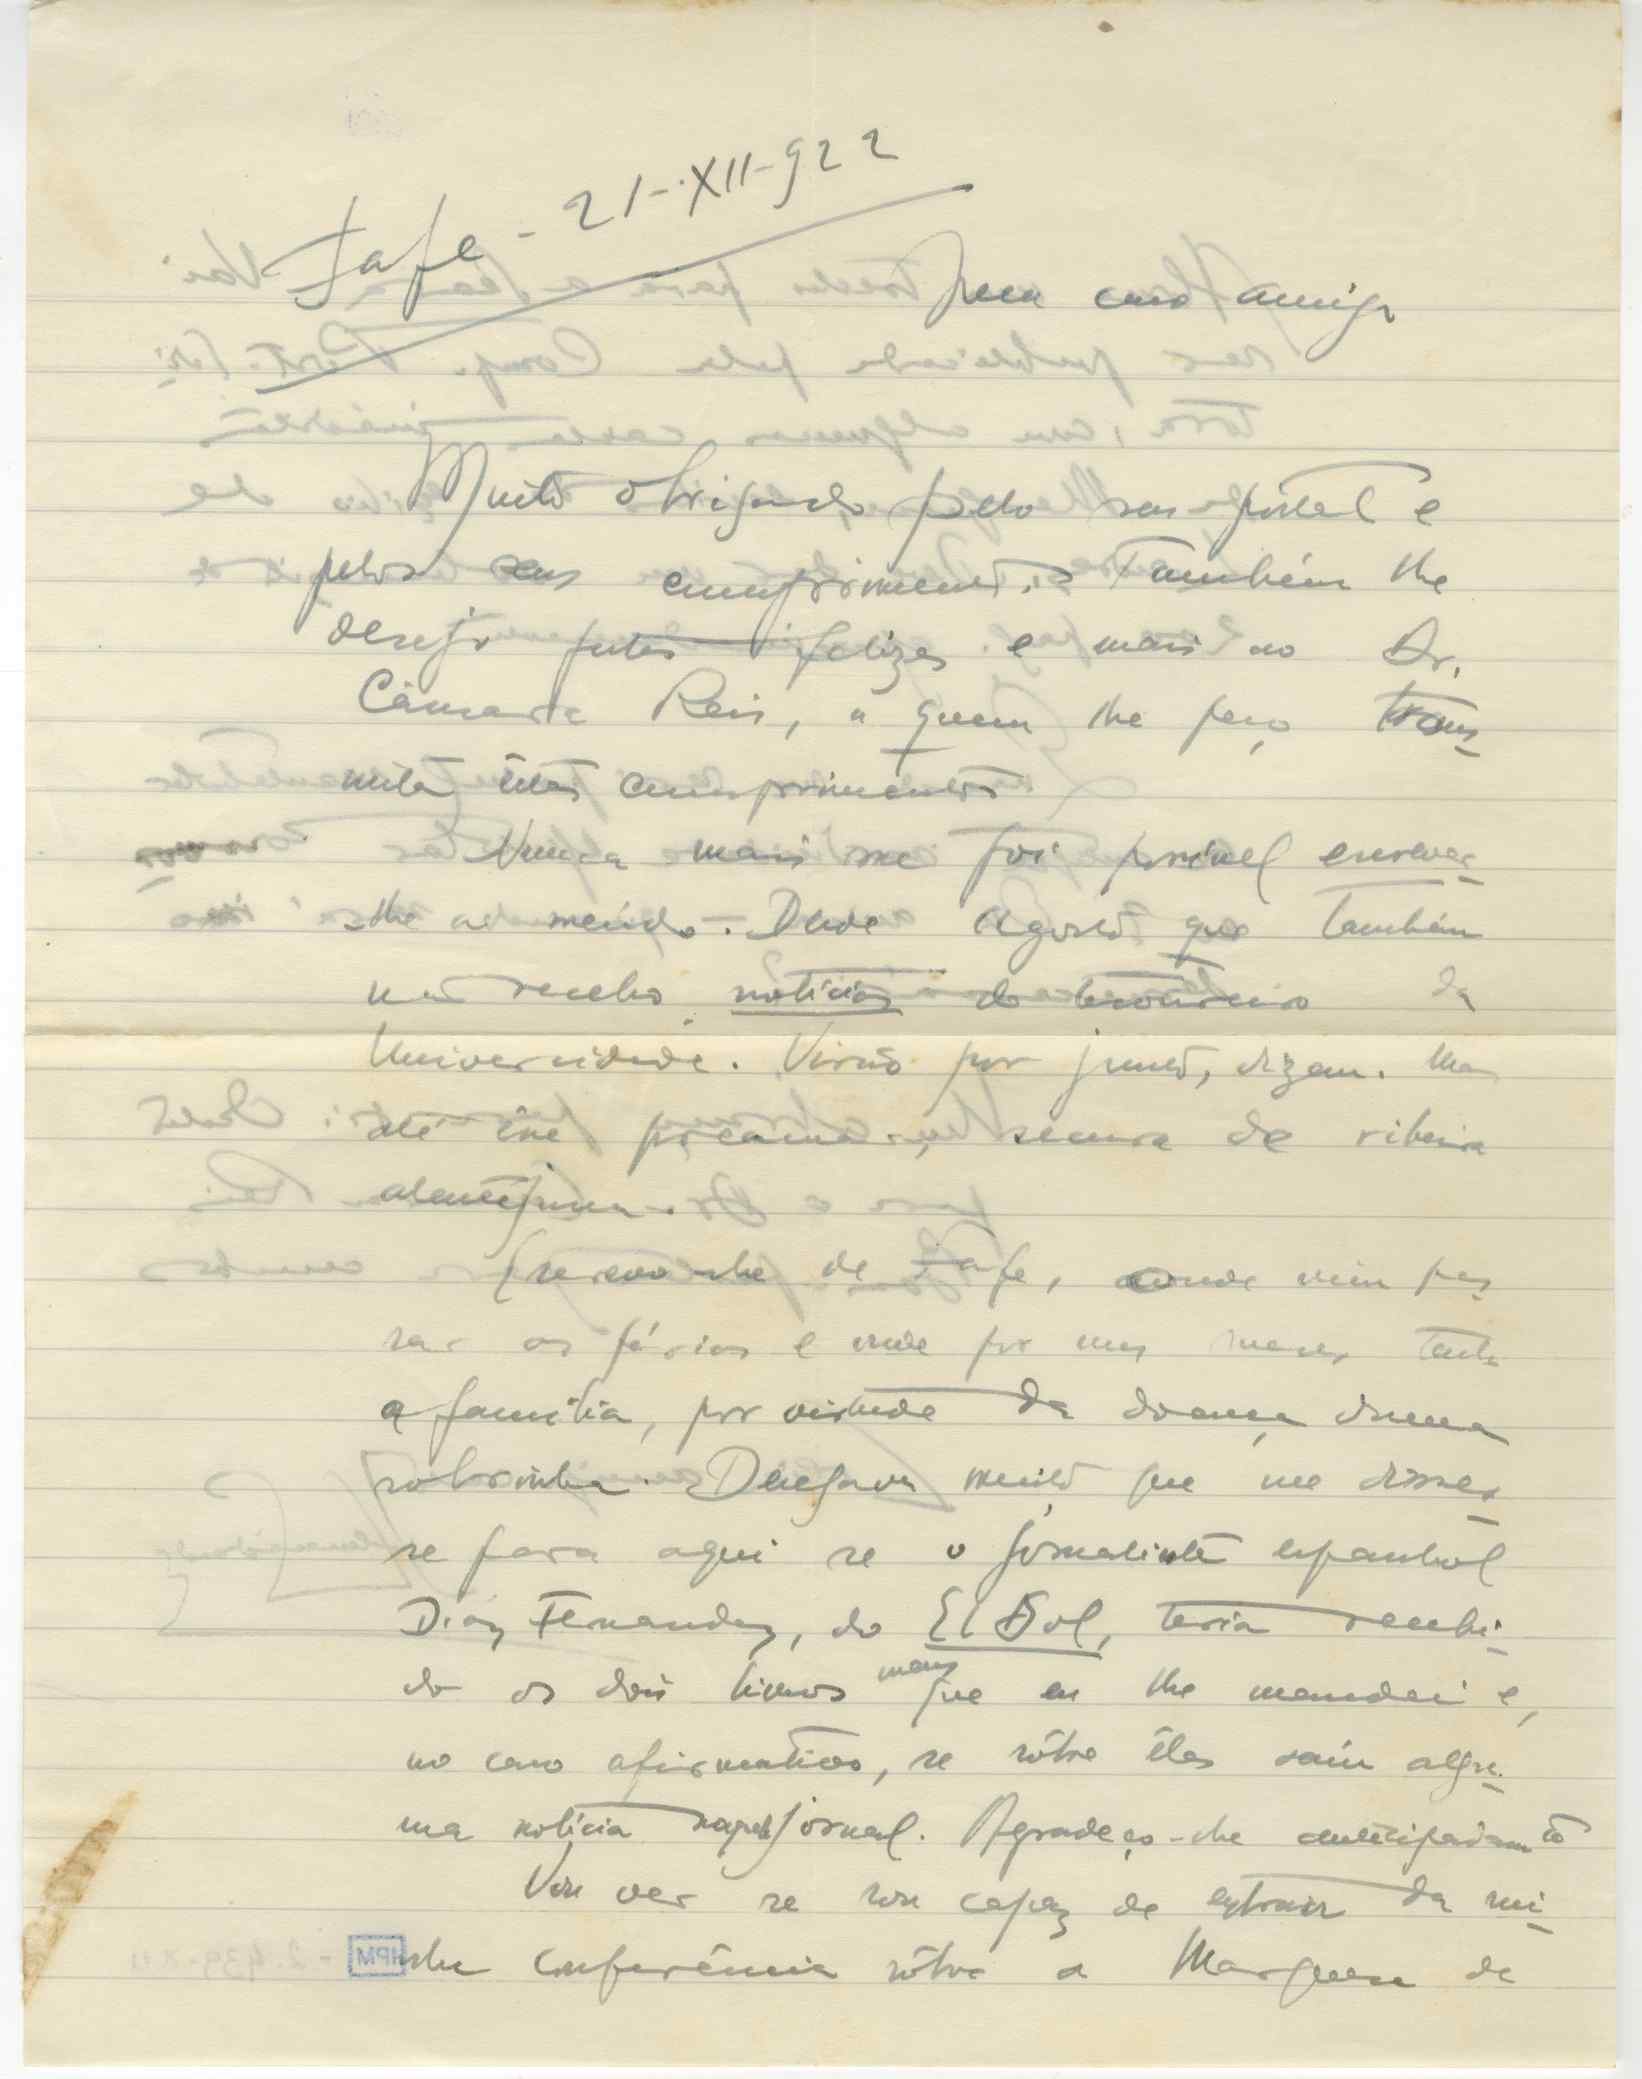 Fafe - 21-XII-922
Meu caro amigo
Muito obrigado pelo seu postal e
pelos seus cumprimentos. Também lhe
desejo festas felizes e mais ao Dr.
Câmara Reis, a quem lhe peço trans-
mita êstes cumprimentos
Nunca mais me foi possível escrever-
-lhe a meúdo. Desde Agosto que também
não recebo notícias do tesoureiro da
Universidade. Virão por junto, dizem. Mas
até êsse pucaina, secura de ribeira
alentejana.
Escrevo-lhe de Fafe, aonde vim pas-
sar as férias e onde por uns meses tenho
a família, por virtude da doença duma
sobrinha. Desejava muito que me disses-
se para aqui se o jornalista espanhol
Diaz Fernandez, do El Sol, teria recebi-
do os dois livros meus que eu lhe mandei e,
no caso afirmativo, se sôbre êles saíu algu-
ma notícia naquele jornal. Agradeço-lhe antecipadamte
Vou ver se sou capaz de extrair da mi-
nha conferência sôbre a Marquesa de
HPM